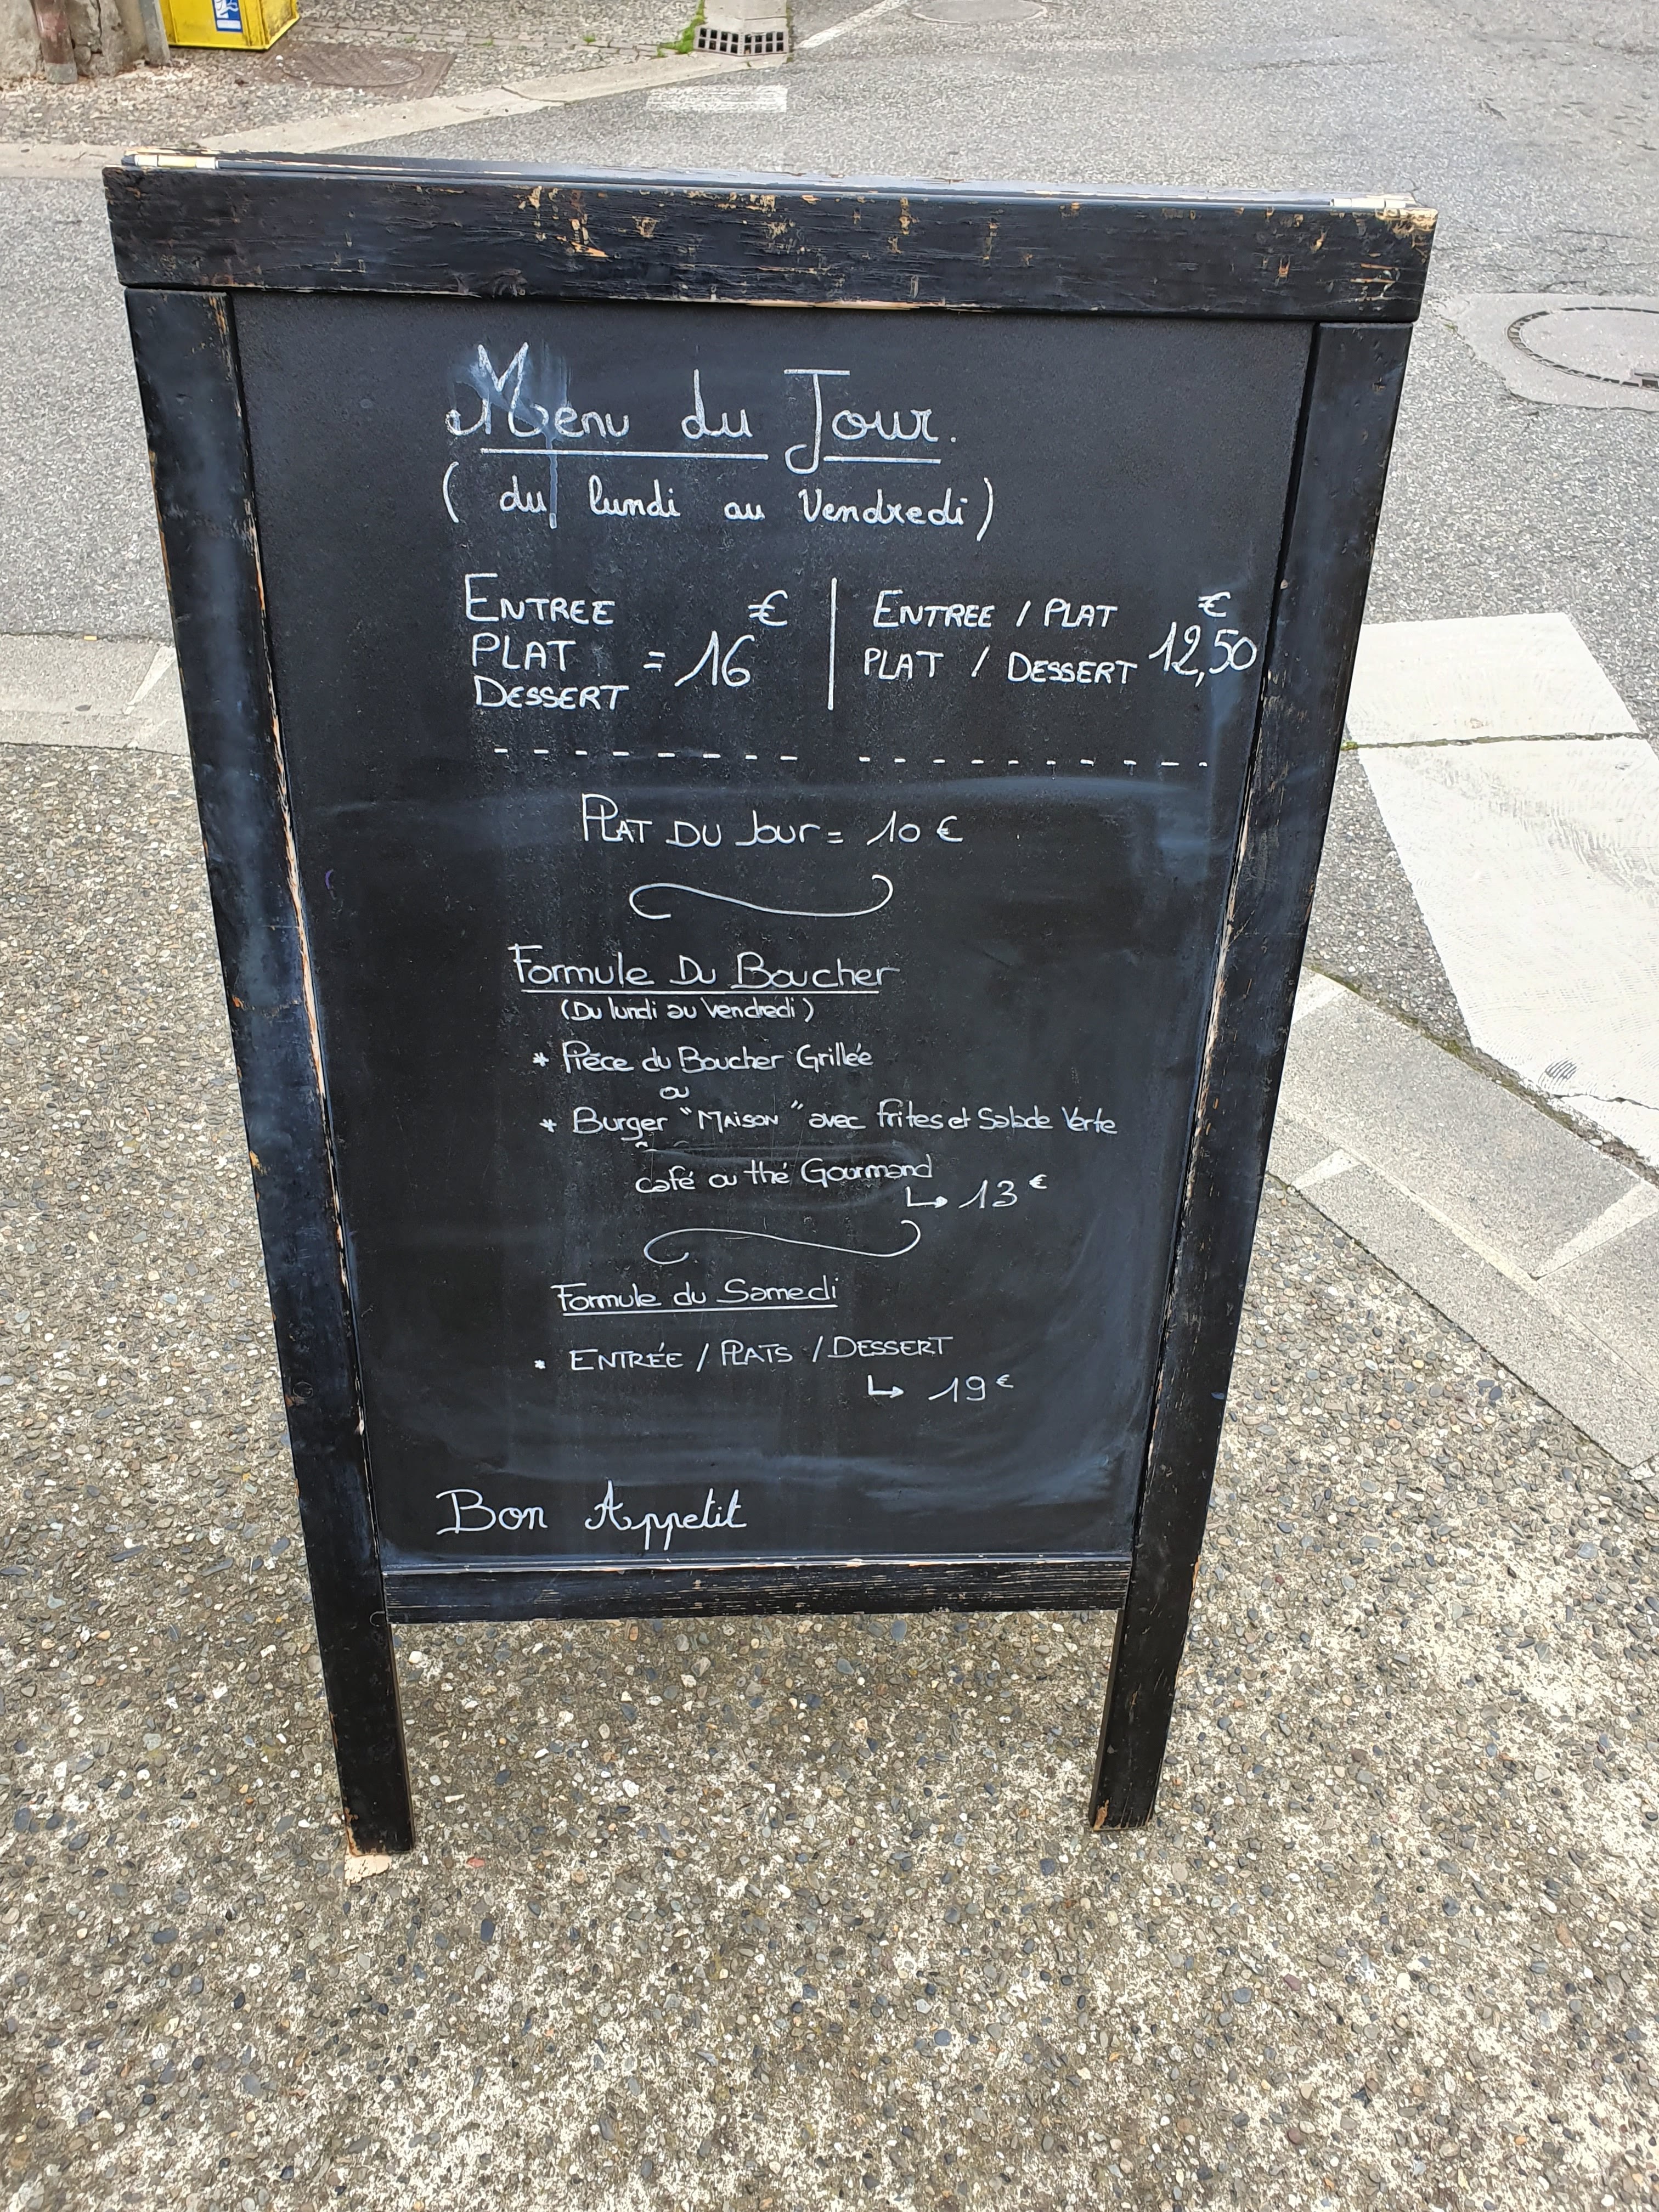 Menu du Jour.
( du lundi au Vendredi )
ENTREE
PLAT
DESSERT
= 16 €
ENTREE / PLAT
PLAT / DESSERT
12,50 €
PLAT DU Jour = 10 €
Formule Du Boucher
(Du lundi au Vendredi)
* Pièce du Boucher Grillée
ou
* Burger "MAISON" avec frites et Salade Verte
café ou thé Gourmand
↳ 13 €
Formule du Samedi
* ENTRÉE / PLATS / DESSERT
↳ 19 €
Bon Appetit